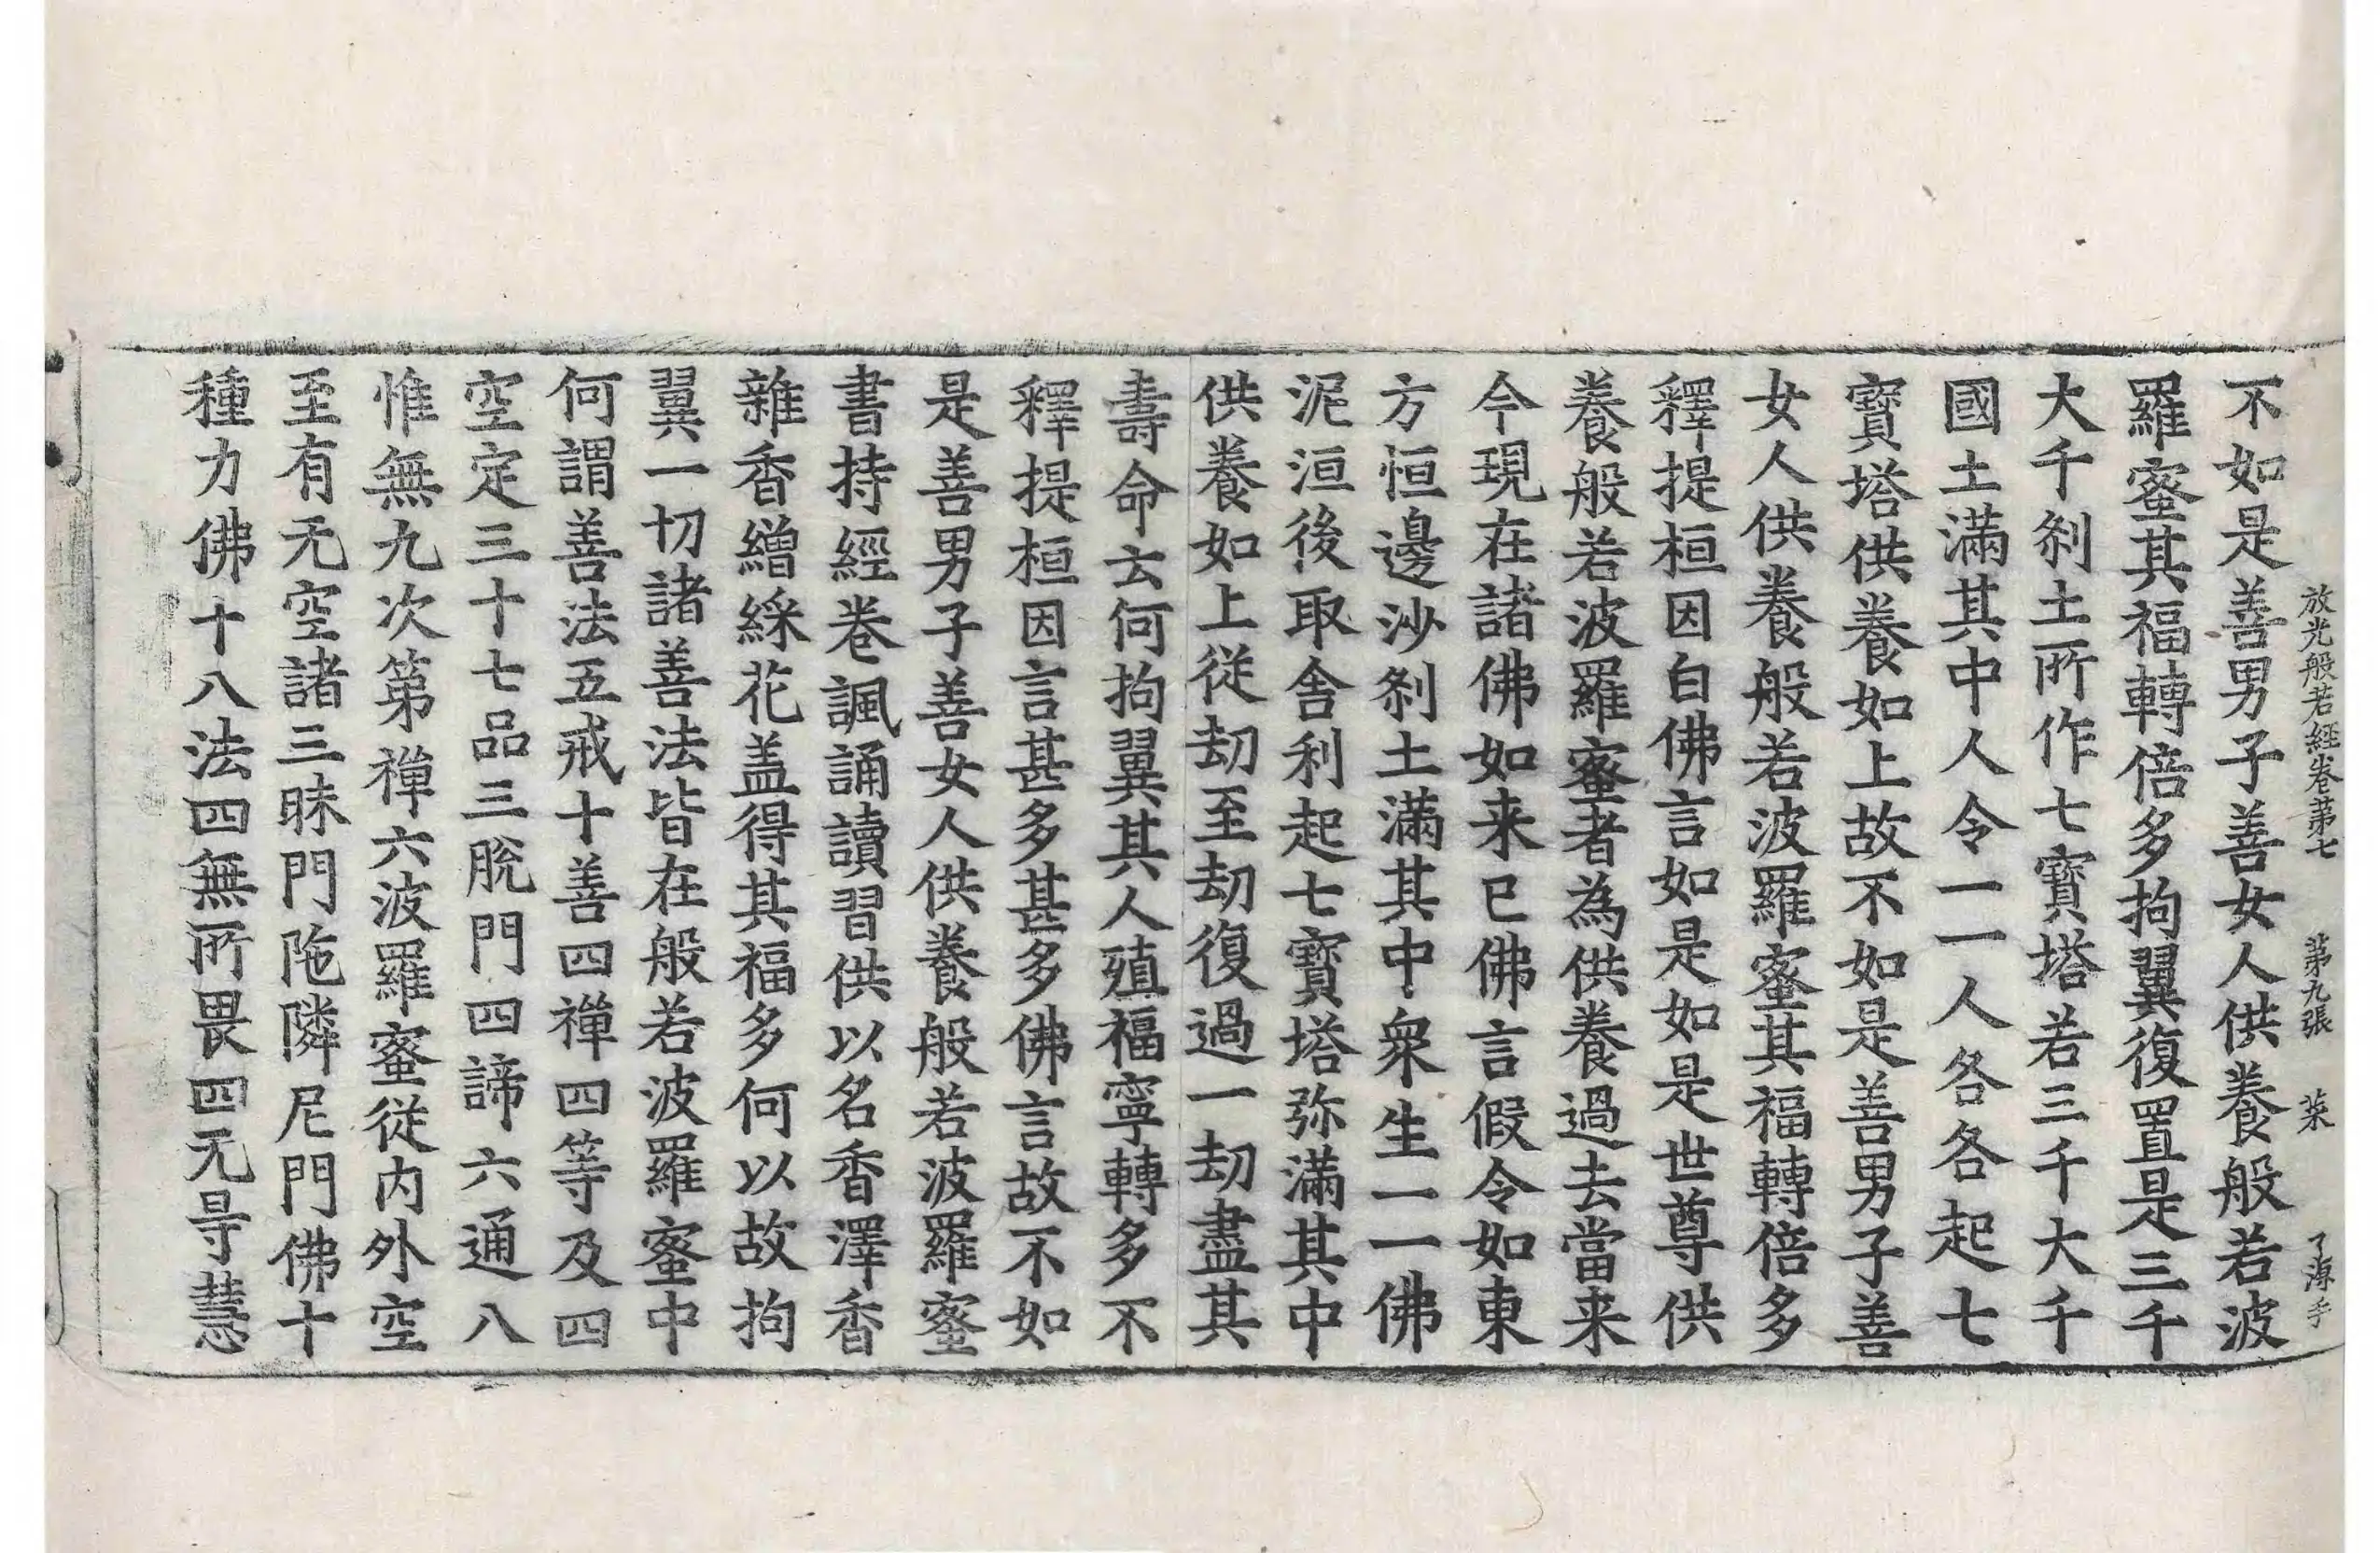 放光般若經卷第七　第九張　菜　了海手
不如是善男子善女人供養般若波
羅蜜其福轉倍多拘翼復置是三千
大千刹土所作七寶塔若三千大千
國土滿其中人令一一人各各起七
寶塔供養如上故不如是善男子善
女人供養般若波羅蜜其福轉倍多
釋提桓因白佛言如是如是世尊供
養般若波羅蜜者為供養過去當来
今現在諸佛如来已佛言假令如東
方恒邊沙刹土滿其中衆生一一佛
泥洹後取舍利起七寶塔弥滿其中
供養如上從劫至劫復過一劫盡其
壽命云何拘翼其人殖福寧轉多不
釋提桓因言甚多甚多佛言故不如
是善男子善女人供養般若波羅蜜
書持經卷諷誦讀習供以名香澤香
雜香繒綵花盖得其福多何以故拘
翼一切諸善法皆在般若波羅蜜中
何謂善法五戒十善四禪四等及四
空定三十七品三脫門四諦六通八
惟無九次第禪六波羅蜜從内外空
至有无空諸三昧門陁隣尼門佛十
種力佛十八法四無所畏四无㝵慧